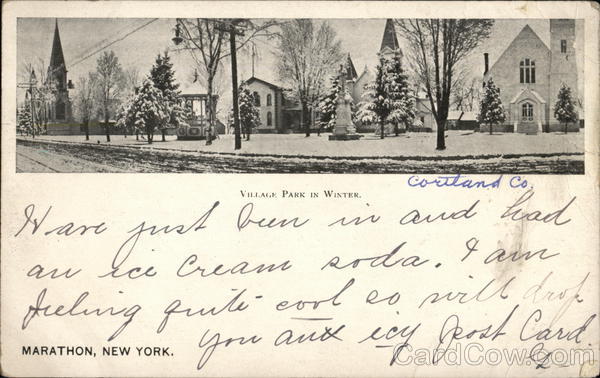 VILLAGE PARK IN WINTER.
Cortland Co.
Have just been in and had
an ice cream soda. I am
feeling quite cool so will drop
you an icy post Card.
MARATHON, NEW YORK.
CardCow.com